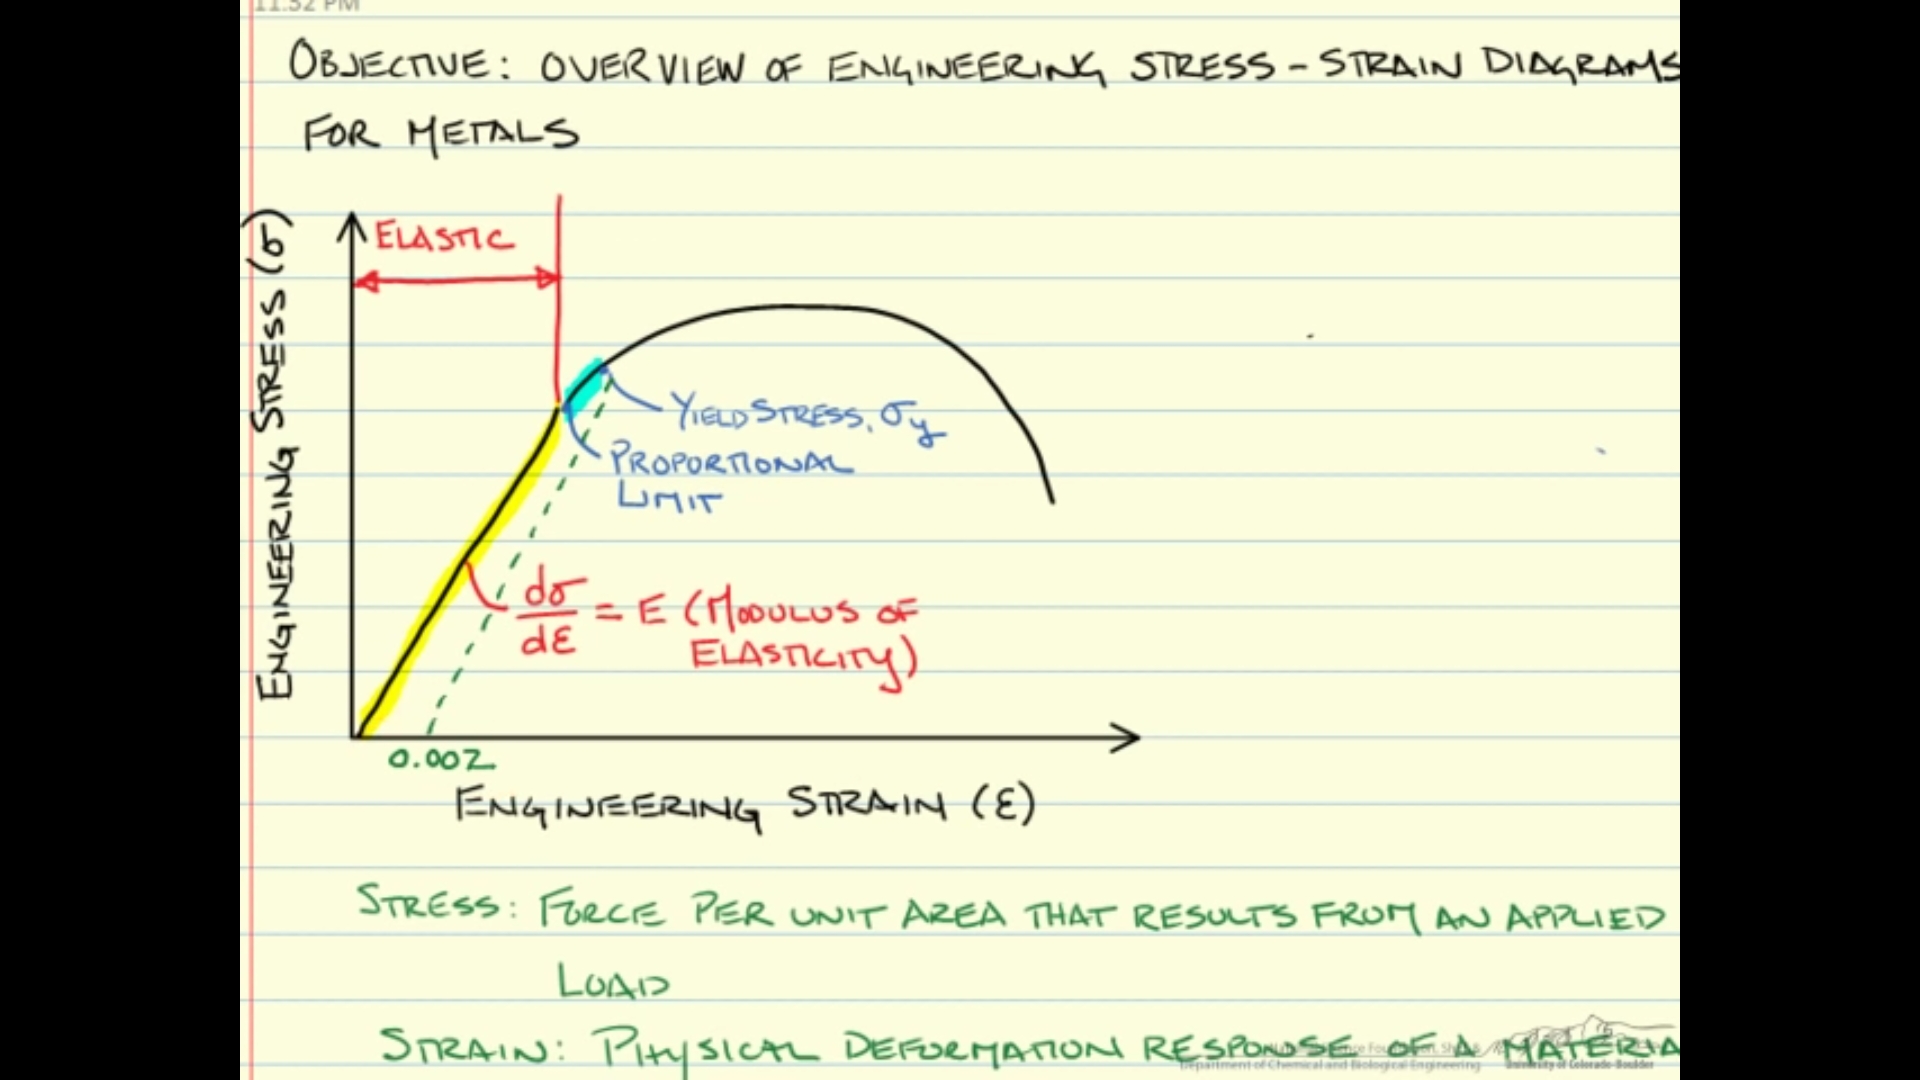 11:52 PM
OBJECTIVE: OVERVIEW OF ENGINEERING STRESS-STRAIN DIAGRAMS
FOR METALS
ELASTIC
ENGINEERING STRESS (σ)
YIELD STRESS, σy
PROPORTIONAL
LIMIT
dσ/dε = E (MODULUS OF
ELASTICITY)
0.002
ENGINEERING STRAIN (ε)
STRESS: FORCE PER UNIT AREA THAT RESULTS FROM AN APPLIED
LOAD
STRAIN: PHYSICAL DEFORMATION RESPONSE OF A MATERIA
Department of Chemical and Biological Engineering
University of Colorado Boulder